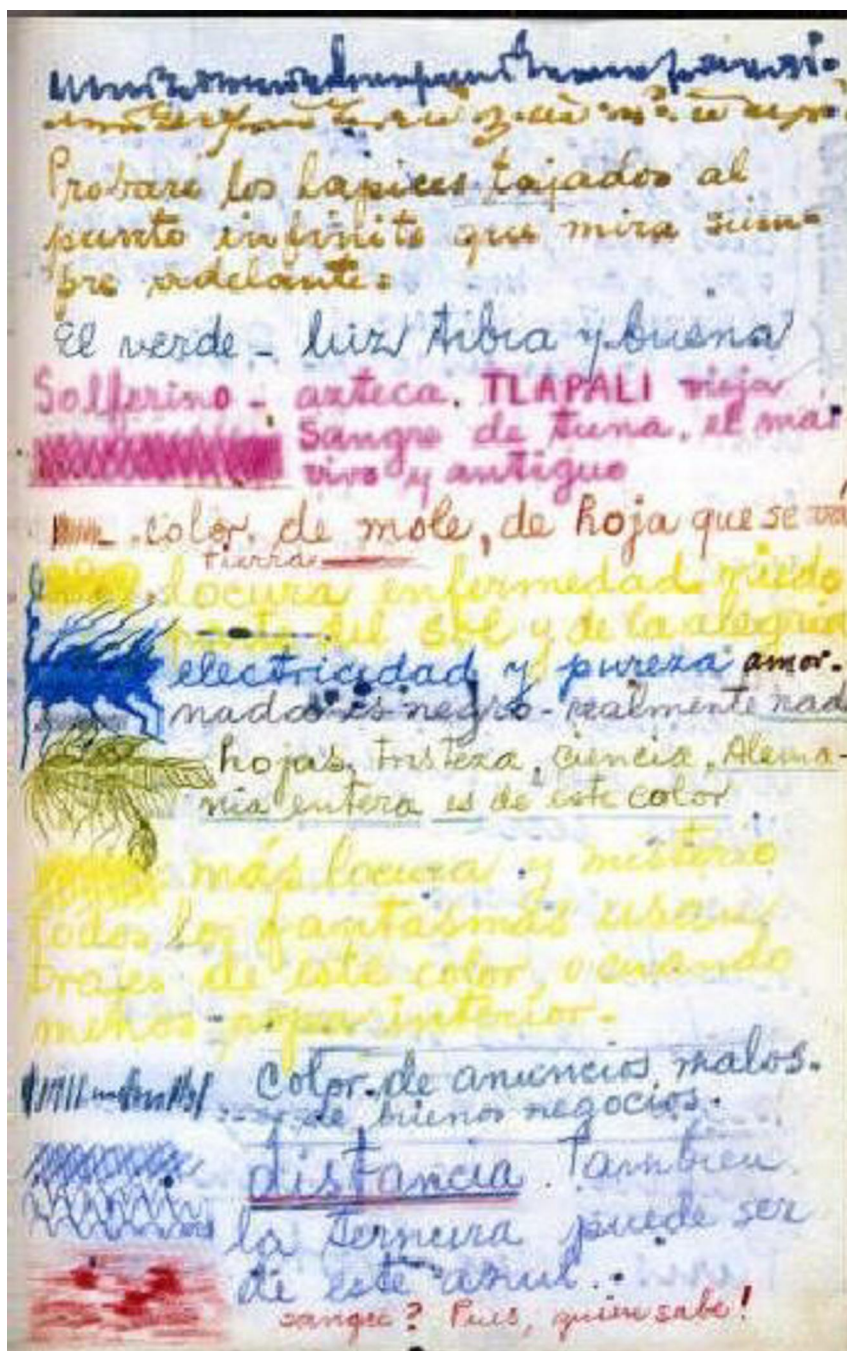 Probaré los lápices tajados al
punto infinito que mira siem-
pre adelante:
El verde - luz tibia y buena
Solferino - azteca. TLAPALI vieja
sangre de tuna, el más
vivo y antiguo
color de mole, de hoja que se va
tierra
locura enfermedad miedo
parte del sol y de la alegría
electricidad y pureza amor.
nada es negro - realmente nad
hojas, tristeza, ciencia, Alema-
nia entera es de este color
más locura y misterio
todos los fantasmas usan
trajes de este color, o cuando
menos ropa interior.
color de anuncios malos.
de buenos negocios.
distancia. También
la ternura puede ser
de este azul.
sangre? Pues, quien sabe!